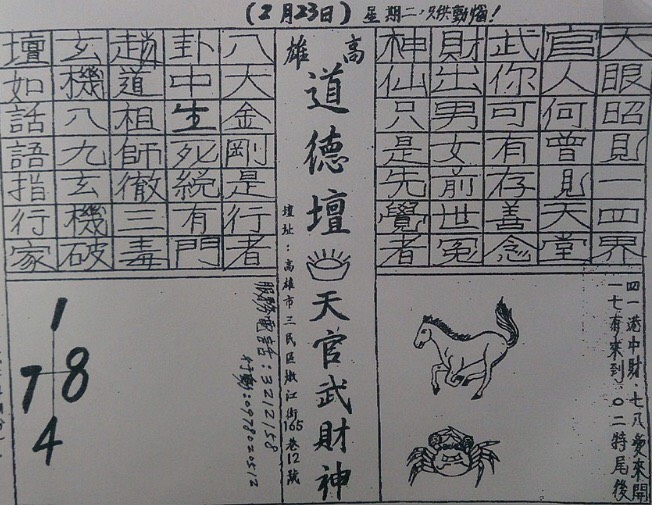 (2月23日) 星期二,只供動惱!
天眼昭則一四界
官人何曾則天堂
武你可有存善念
財出男女前世冤
神仙只是先覺者
四一港中財.七八變來開
一七有來到.〇二特尾後
高雄
道德壇
天官武財神
壇址:高雄市三民區嫩江街165巷12號
服務電話:3212158
行動:0978020512
八大金剛是行者
卦中生死統有門
趙道祖師徹三毒
玄機八九玄機破
壇如話語指行家
1
7 8
4